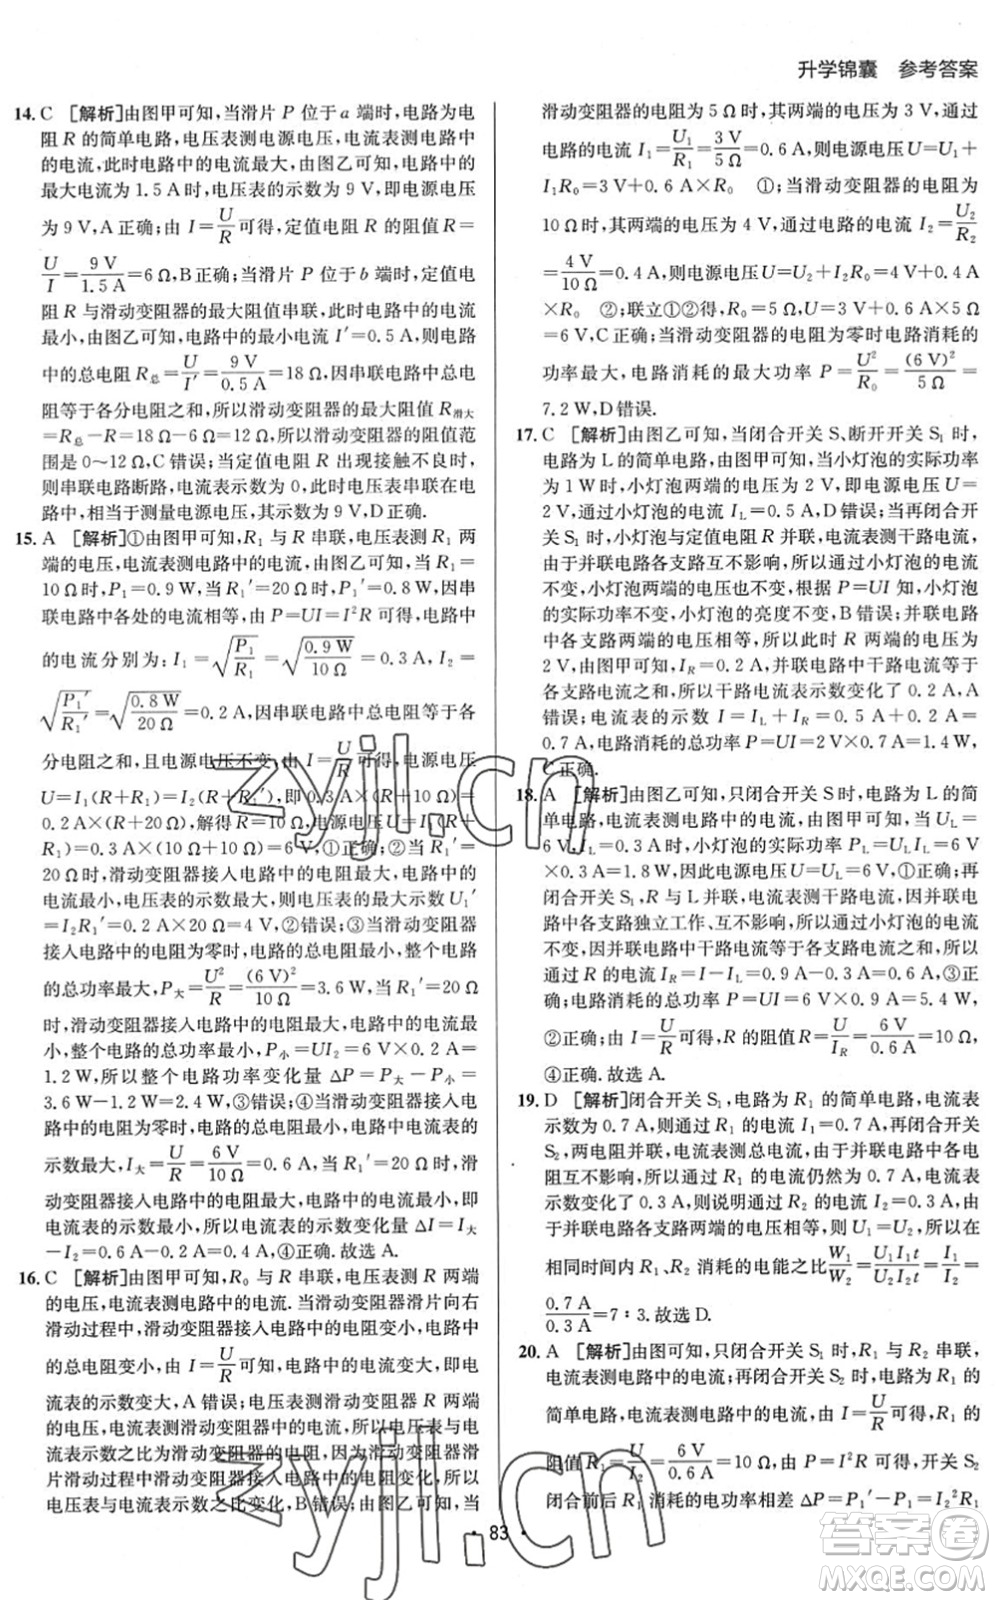 升学锦囊 参考答案
14. C [解析]由图甲可知,当滑片 P 位于 a 端时,电路为电
阻 R 的简单电路,电压表测电源电压,电流表测电路中
的电流,此时电路中的电流最大,由图乙可知,电路中的
最大电流为 1.5 A时,电压表的示数为 9 V,即电源电压
为 9 V,A正确;由 I=U/R可得,定值电阻 R 的阻值 R=
U/I=9 V/1.5 A=6 Ω,B正确;当滑片 P 位于 b 端时,定值电
阻 R 与滑动变阻器的最大阻值串联,此时电路中的电流
最小,由图乙可知,电路中的最小电流 I′=0.5 A,则电路
中的总电阻 R总=U/I′=9 V/0.5 A=18 Ω,因串联电路中总电
阻等于各分电阻之和,所以滑动变阻器的最大阻值 R滑大
=R总-R=18 Ω-6 Ω=12 Ω,所以滑动变阻器的阻值范
围是 0～12 Ω,C错误;当定值电阻 R 出现接触不良时,
则串联电路断路,电流表示数为 0,此时电压表串联在电
路中,相当于测量电源电压,其示数为 9 V,D正确.
15. A [解析]①由图甲可知,R1 与 R 串联,电压表测 R1 两
端的电压,电流表测电路中的电流,由图乙可知,当 R1=
10 Ω时,P1=0.9 W,当 R1′=20 Ω时,P1′=0.8 W,因串
联电路中各处的电流相等,由 P=UI=I²R 可得,电路中
的电流分别为:I1=√(P1/R1)=√(0.9 W/10 Ω)=0.3 A,I2=
√(P1′/R1′)=√(0.8 W/20 Ω)=0.2 A,因串联电路中总电阻等于各
分电阻之和,且电源电压不变,由 I=U/R可得,电源电压
U=I1(R+R1)=I2(R+R1′),即 0.3 A×(R+10 Ω)=
0.2 A×(R+20 Ω),解得 R=10 Ω,电源电压 U=I1(R+
R1)=0.3 A×(10 Ω+10 Ω)=6 V,①正确;②当 R1′=
20 Ω时,滑动变阻器接入电路中的电阻最大,电路中的电
流最小,电压表的示数最大,则电压表的最大示数 U1′
=I2R1′=0.2 A×20 Ω=4 V,②错误;③当滑动变阻器
接入电路中的电阻为零时,电路的总电阻最小,整个电路
的总功率最大,P大=U²/R=(6 V)²/10 Ω=3.6 W,当 R1′=20 Ω
时,滑动变阻器接入电路中的电阻最大,电路中的电流最
小,整个电路的总功率最小,P小=UI2=6 V×0.2 A=
1.2 W,所以整个电路功率变化量 ΔP=P大-P小=
3.6 W-1.2 W=2.4 W,③错误;④当滑动变阻器接入电
路中的电阻为零时,电路的总电阻最小,电路中电流表的
示数最大,I大=U/R=6 V/10 Ω=0.6 A,当 R1′=20 Ω时,滑
动变阻器接入电路中的电阻最大,电路中的电流最小,即
电流表的示数最小,所以电流表的示数变化量 ΔI=I大
-I2=0.6 A-0.2 A=0.4 A,④正确.故选 A.
16. C [解析]由图甲可知,R0 与 R 串联,电压表测 R 两端
的电压,电流表测电路中的电流.当滑动变阻器滑片向右
滑动过程中,滑动变阻器接入电路中的电阻变小,电路中
的总电阻变小,由 I=U/R可知,电路中的电流变大,即电
流表的示数变大,A错误;电压表测滑动变阻器 R 两端
的电压,电流表测滑动变阻器中的电流,所以电压表与电
流表示数之比为滑动变阻器的电阻,因为滑动变阻器滑
片滑动过程中滑动变阻器接入电路中的电阻变化,所以
电压表与电流表示数之比变化,B错误;由图乙可知,当
滑动变阻器的电阻为 5 Ω时,其两端的电压为 3 V,通过
电路的电流 I1=U1/R1=3 V/5 Ω=0.6 A,则电源电压 U=U1+
I1R0=3 V+0.6 A×R0 ①;当滑动变阻器的电阻为
10 Ω时,其两端的电压为 4 V,通过电路的电流 I2=U2/R2
=4 V/10 Ω=0.4 A,则电源电压 U=U2+I2R0=4 V+0.4 A
×R0 ②;联立①②得,R0=5 Ω,U=3 V+0.6 A×5 Ω
=6 V,C正确;当滑动变阻器的电阻为零时电路消耗的
功率最大,电路消耗的最大功率 P=U²/R0=(6 V)²/5 Ω=
7.2 W,D错误.
17. C [解析]由图乙可知,当闭合开关 S,断开开关 S1 时,
电路为 L 的简单电路,由图甲可知,当小灯泡的实际功率
为 1 W时,小灯泡两端的电压为 2 V,即电源电压为 2 V,
此时通过小灯泡的电流 IL=0.5 A,D错误;当再闭合开
关 S1 时,小灯泡与定值电阻 R 并联,电流表测干路电流,
由于并联电路各支路互不影响,所以通过小灯泡的电流
不变,小灯泡两端的电压也不变,根据 P=UI 知,小灯泡
的实际功率不变,小灯泡的亮度不变,B错误;并联电路
中各支路两端的电压相等,所以此时 R 两端的电压为
2 V,由图甲可知,IR=0.2 A,并联电路中干路电流等于
各支路电流之和,所以干路电流表示数变化了 0.2 A,A
错误;电流表的示数 I=IL+IR=0.5 A+0.2 A=
0.7 A,电路消耗的总功率 P=UI=2 V×0.7 A=1.4 W,
C正确.
18. A [解析]由图乙可知,只闭合开关 S时,电路为 L 的简
单电路,电流表测电路中的电流,由图甲可知,当 UL=
6 V,IL=0.3 A时,小灯泡的实际功率 PL=ULIL=6 V
×0.3 A=1.8 W,因此电源电压 U=UL=6 V,①正确;再
闭合开关 S1,R 与 L 并联,电流表测干路电流,因并联电
路中各支路独立工作、互不影响,所以通过小灯泡的电流
不变,因并联电路中干路电流等于各支路电流之和,所以
通过 R 的电流 IR=I-IL=0.9 A-0.3 A=0.6 A,③正
确;电路消耗的总功率 P=UI=6 V×0.9 A=5.4 W,
②正确;由 I=U/R可得,R 的阻值 R=U/IR=6 V/0.6 A=10 Ω,
④正确.故选 A.
19. D [解析]闭合开关 S1,电路为 R1 的简单电路,电流表示
数为 0.7 A,则通过 R1 的电流 I1=0.7 A,再闭合开关
S2,两电阻并联,电流表测总电流,由于并联电路各支路
互不影响,所以通过 R1 的电流仍然为 0.7 A,电流表
示数变化了 0.3 A,则说明通过 R2 的电流 I2=0.3 A,
由于并联电路各支路两端的电压相等,则 U1=U2,所以
相同时间内 R1、R2 消耗的电能之比W1/W2=U1I1t/U2I2t=I1/I2=
0.7 A/0.3 A=7∶3.故选 D.
20. A [解析]由图可知,只闭合开关 S1 时,R1 与 R2 串联,
电流表测电路中的电流;再闭合开关 S2 时,电路为 R1 的
简单电路,电流表测电路中的电流,由 I=U/R可得,R1 的
阻值 R1=U/I2=6 V/0.6 A=10 Ω,由 P=I²R 可得,开关 S2
闭合前后 R1 消耗的电功率相差 ΔP=P1′-P1=I2²R1
· 83 ·
zyjl.cn
zyjl.cn
答案圈
MXQE.COM